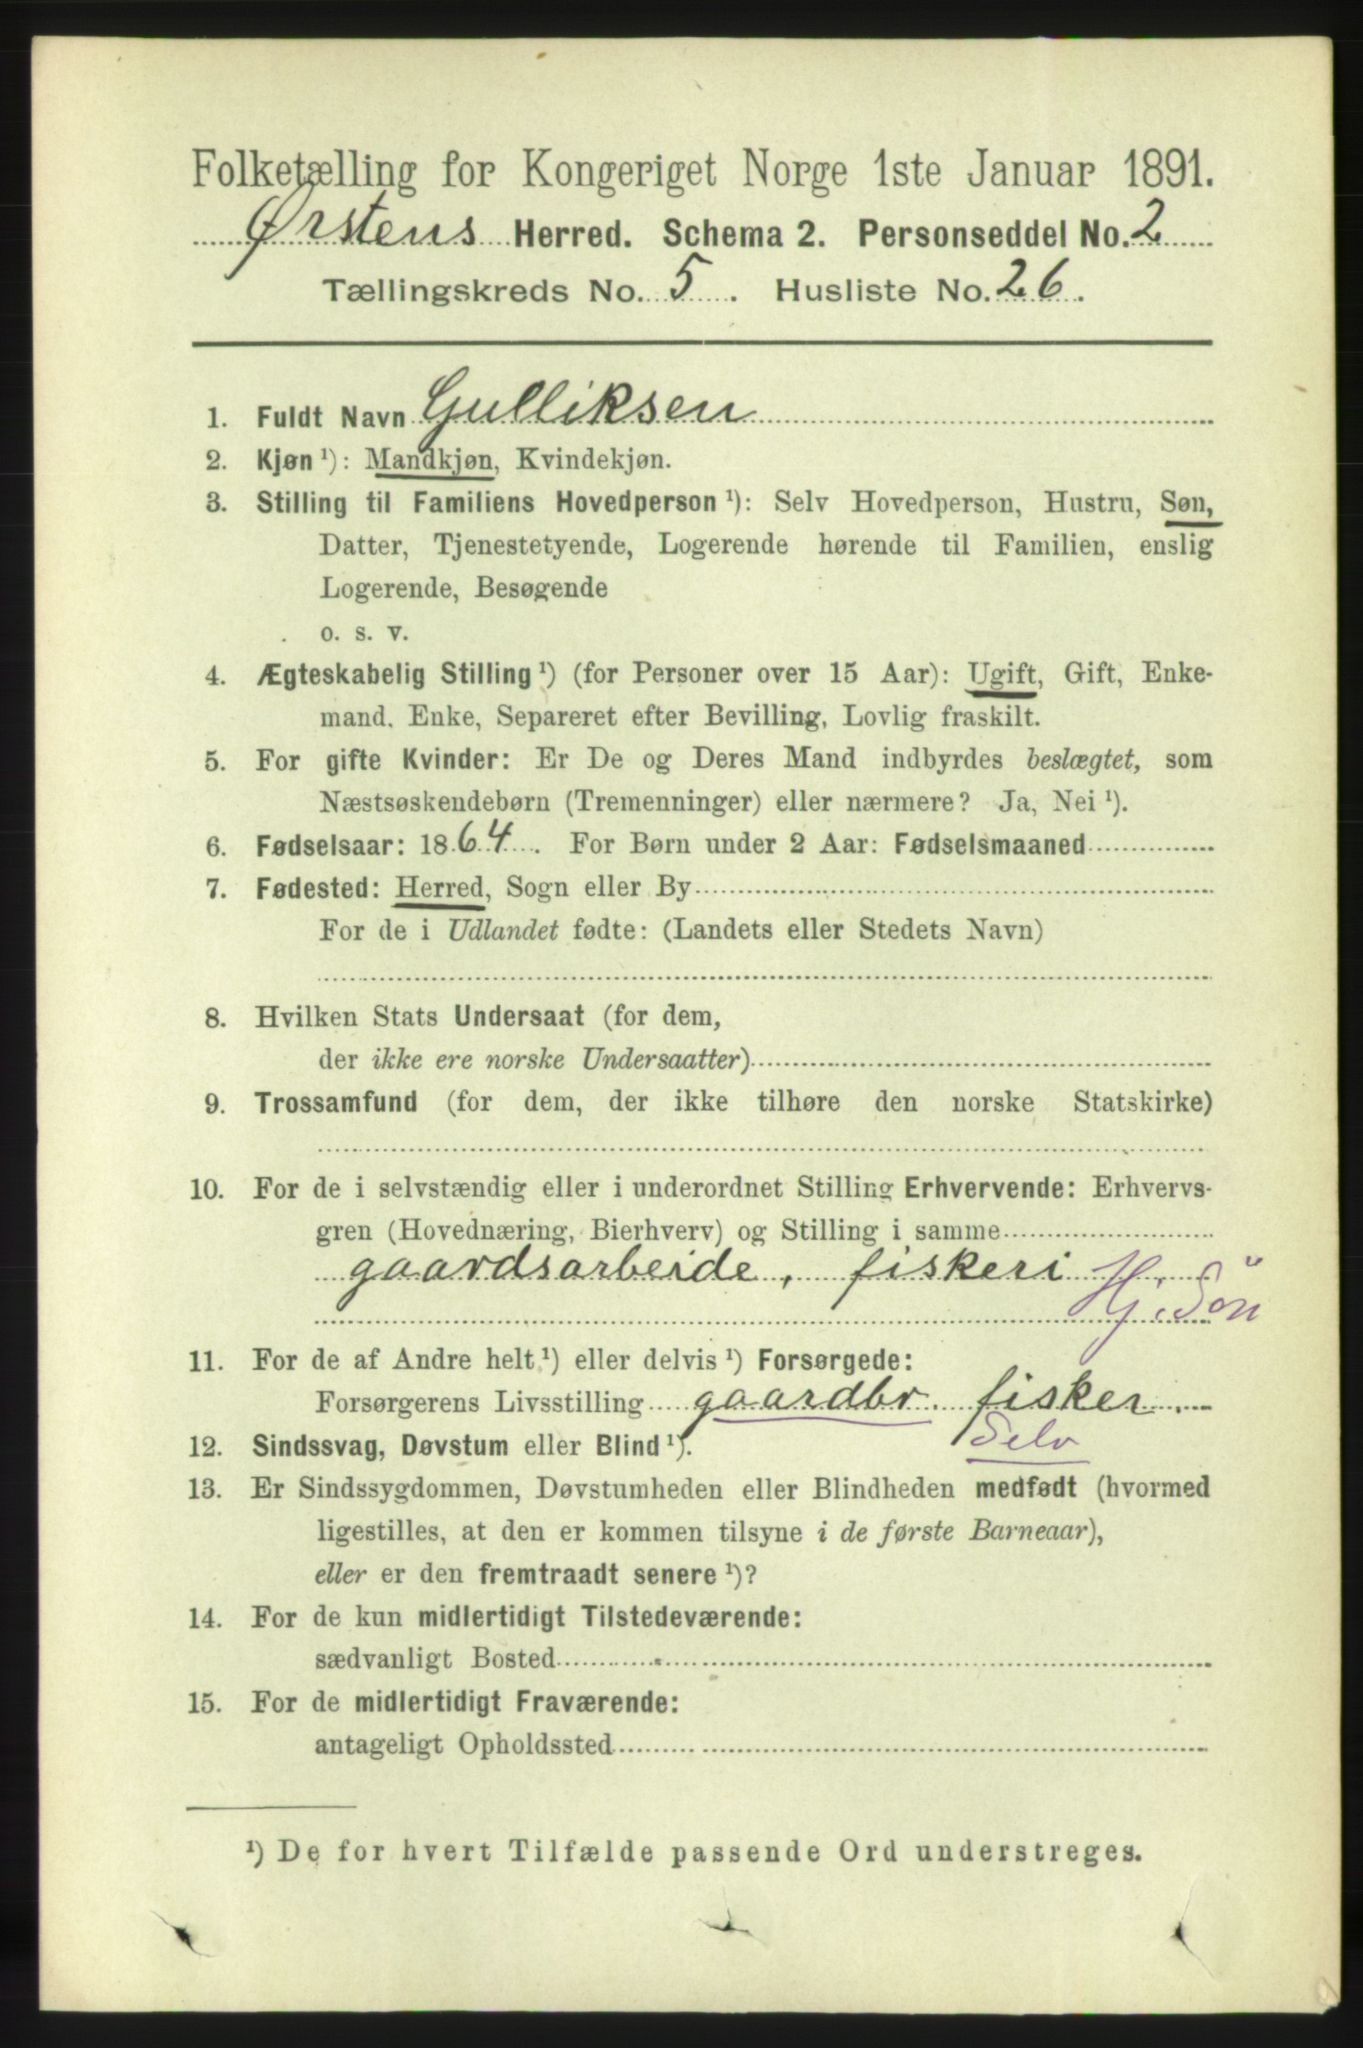 Folketælling for Kongeriget Norge 1ste Januar 1891.
Ørstens Herred. Schema 2. Personseddel No. 2
Tællingskreds No. 5. Husliste No. 26.
1. Fuldt Navn Gulliksen
2. Kjøn ¹): Mandkjøn, Kvindekjøn.
3. Stilling til Familiens Hovedperson ¹): Selv Hovedperson, Hustru, Søn,
Datter, Tjenestetyende, Logerende hørende til Familien, enslig
Logerende, Besøgende
o. s. v.
4. Ægteskabelig Stilling ¹) (for Personer over 15 Aar): Ugift, Gift, Enke-
mand, Enke, Separeret efter Bevilling, Lovlig fraskilt.
5. For gifte Kvinder: Er De og Deres Mand indbyrdes beslægtet, som
Næstsøskendebørn (Tremenninger) eller nærmere? Ja, Nei ¹).
6. Fødselsaar: 1864. For Børn under 2 Aar: Fødselsmaaned
7. Fødested: Herred, Sogn eller By
For de i Udlandet fødte: (Landets eller Stedets Navn)
8. Hvilken Stats Undersaat (for dem,
der ikke ere norske Undersaatter)
9. Trossamfund (for dem, der ikke tilhøre den norske Statskirke)
10. For de i selvstændig eller i underordnet Stilling Erhvervende: Erhvervs-
gren (Hovednæring, Bierhverv) og Stilling i samme
gaardsarbeide, fiskeri
Hj. Sön
11. For de af Andre helt ¹) eller delvis ¹) Forsørgede:
Forsørgerens Livsstilling gaardbr. fisker.
Selv
12. Sindssvag, Døvstum eller Blind ¹).
13. Er Sindssygdommen, Døvstumheden eller Blindheden medfødt (hvormed
ligestilles, at den er kommen tilsyne i de første Barneaar),
eller er den fremtraadt senere ¹)?
14. For de kun midlertidigt Tilstedeværende:
sædvanligt Bosted
15. For de midlertidigt Fraværende:
antageligt Opholdssted
¹) De for hvert Tilfælde passende Ord understreges.